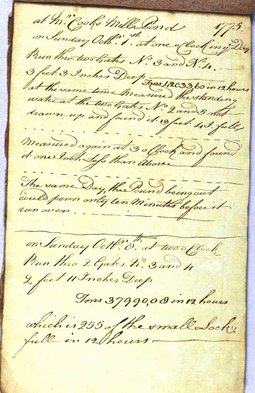 at Mr Cooks Mills Pound 1775
on Sunday Octr. 1st at one o'Clock in ye Day
Run thro two Gates No. 3 and No. 4.
3 feet 3 Inches Deep Tons 42033,60 in 12 hours
at the same time Measured the standing
water at the two Gates No. 2 and 5 not
drawn up and found it 13 feet 4 I full
Measured again at 3 o Clock and found
it one Inch Less than above
The same Day, the Pound being out
could penn only ten Minutes before it
run over
on Sunday Octr. 8th. at two o Clock
Run thro 2 Gates No. 3 and 4
2 feet 11 Inches Deep
Tons 37990,08 in 12 hours
which is 255 of the small Locks
full in 12 hours